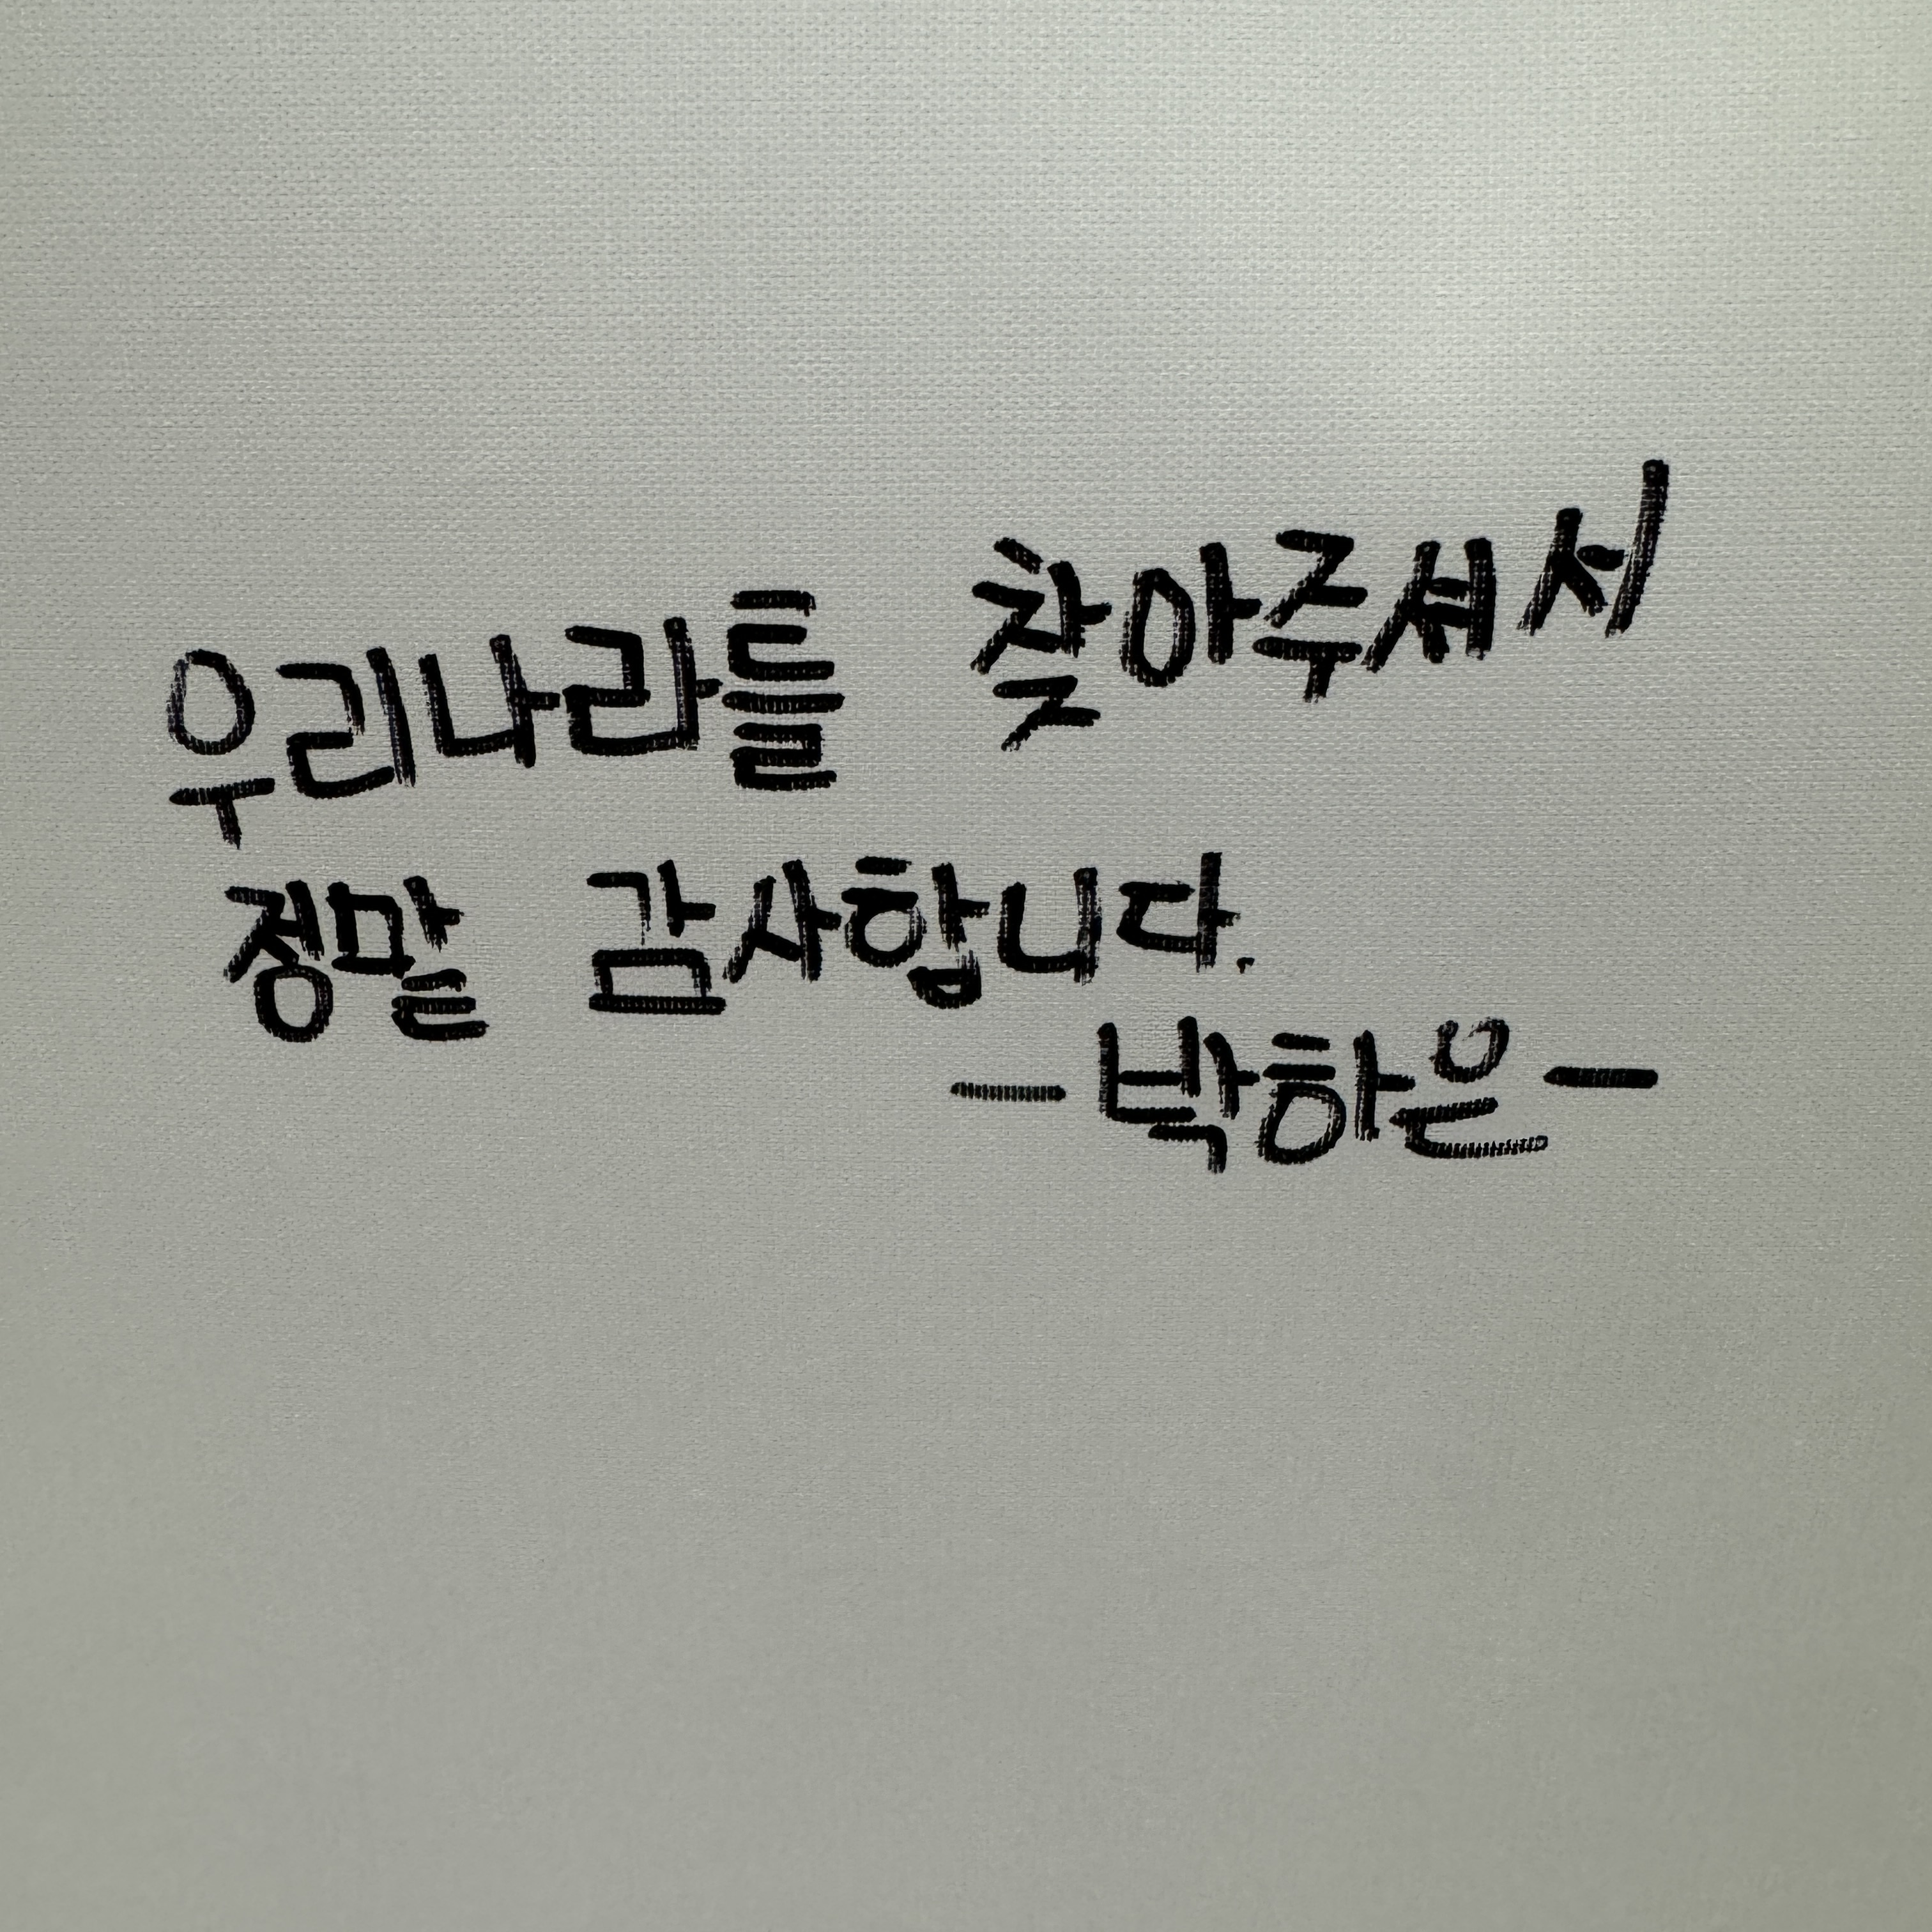 우리나라를 찾아주셔서
정말 감사합니다.
- 박하은 -